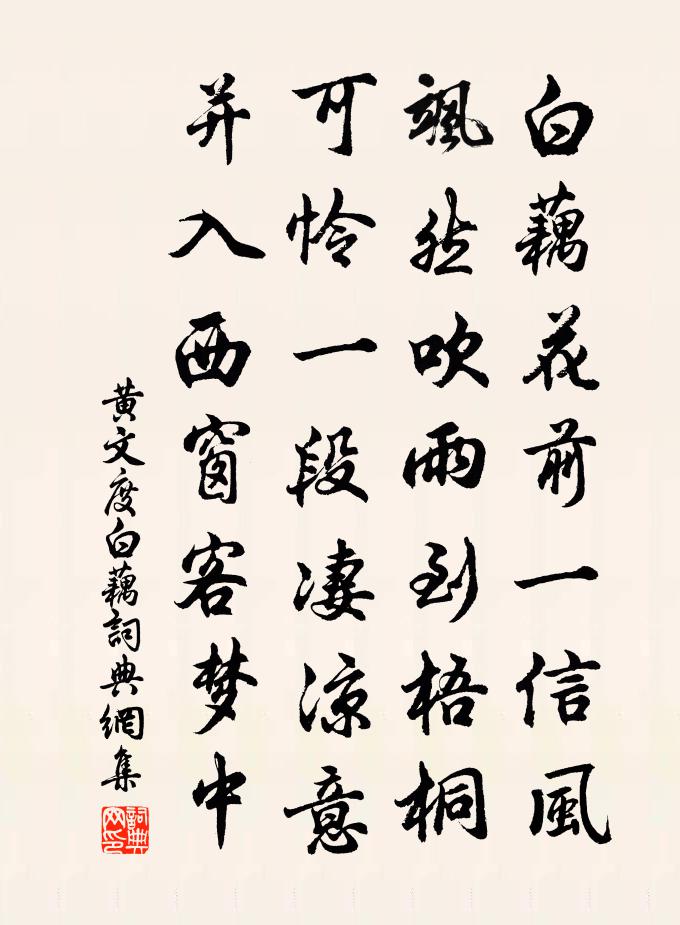 白藕花前一信風
颯然吹雨到梧桐
可怜一段凄凉意
并入西窗客梦中
黄文度白藕詞典網集
詞典網印